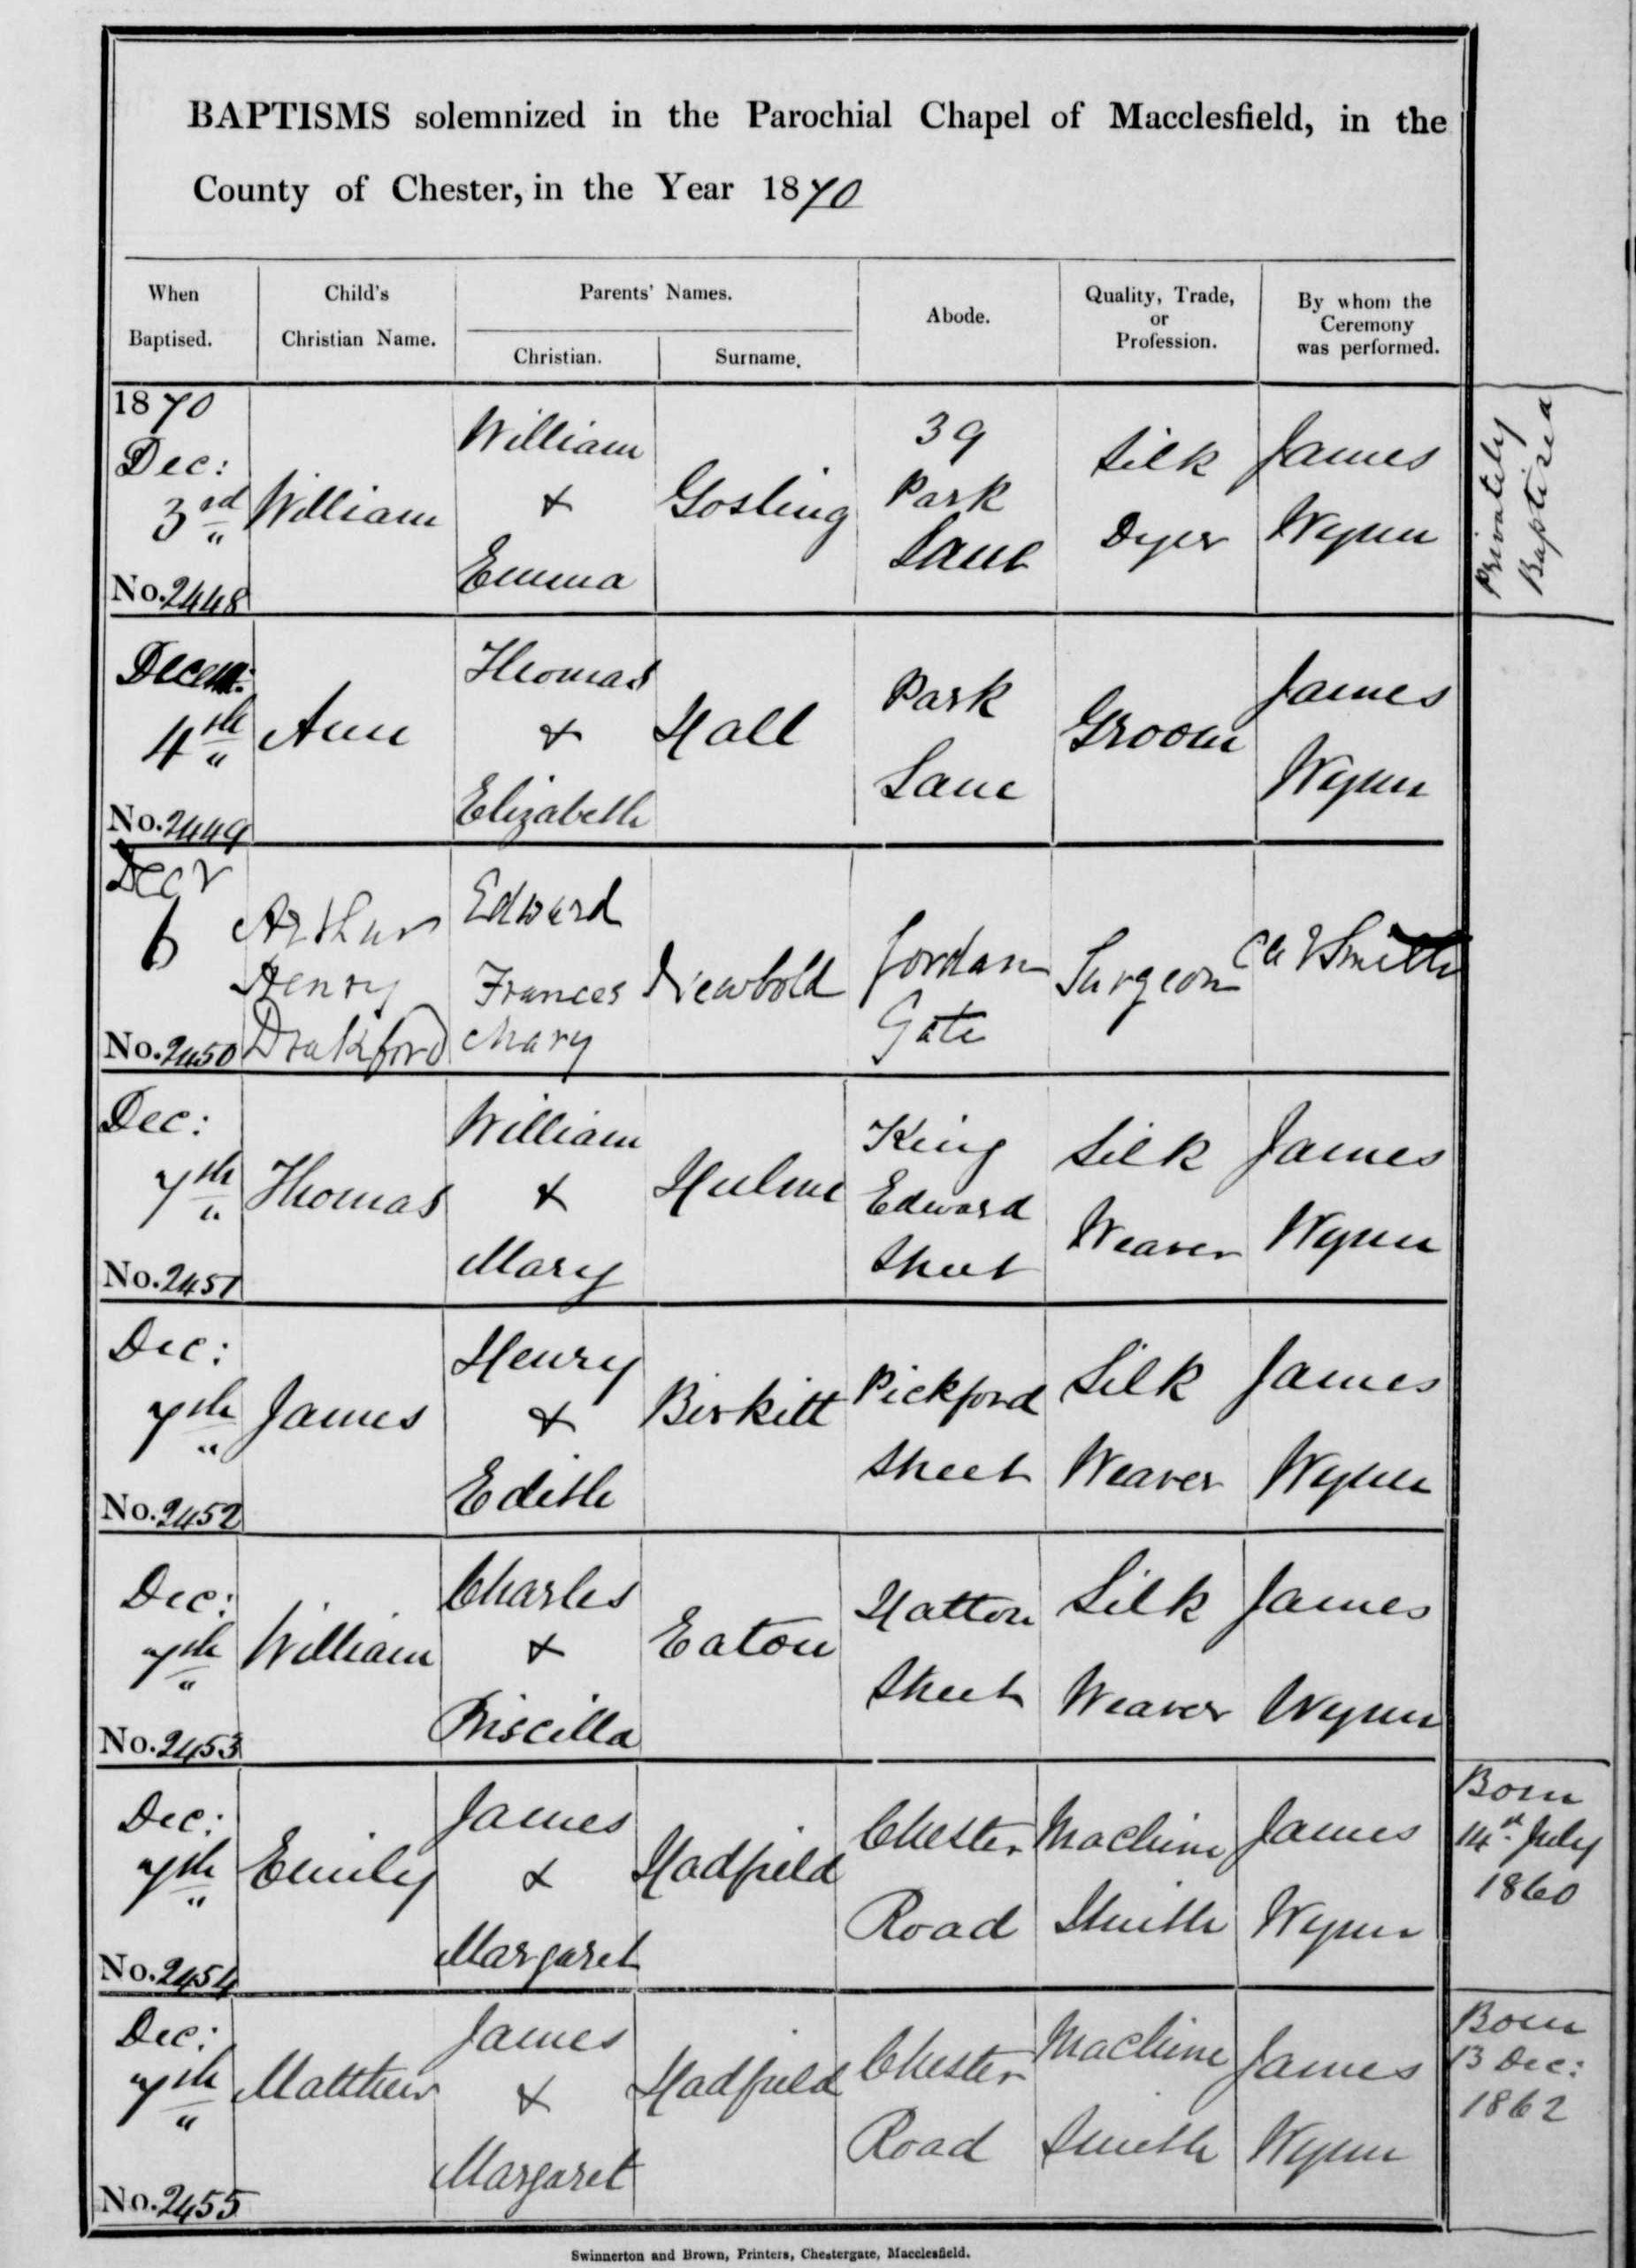 BAPTISMS solemnized in the Parochial Chapel of Macclesfield, in the
County of Chester, in the Year 1870
When Baptised.
Child's Christian Name.
Parents' Names.
Christian.
Surname.
Abode.
Quality, Trade, or Profession.
By whom the Ceremony was performed.
1870
Dec:
3rd
No. 2448
William
William
&
Emma
Gosling
39
Park
Lane
Silk
Dyer
James
Wynn
Privately
Baptized
Decem:
4th
No. 2449
Ann
Thomas
&
Elizabeth
Hall
Park
Lane
Groom
James
Wynn
Decr
6
No. 2450
Arthur
Henry
Drakford
Edward
Frances
Mary
Newbold
Jordan
Gate
Surgeon
Smith
Dec:
7th
No. 2451
Thomas
William
&
Mary
Hulme
King
Edward
Street
Silk
Weaver
James
Wynn
Dec:
7th
No. 2452
James
Henry
&
Edith
Birkitt
Pickford
Street
Silk
Weaver
James
Wynn
Dec:
7th
No. 2453
William
Charles
&
Priscilla
Eaton
Hatton
Street
Silk
Weaver
James
Wynn
Dec:
7th
No. 2454
Emily
James
&
Margaret
Hadfield
Chester
Road
Machine
Smith
James
Wynn
Born
14th July
1860
Dec:
7th
No. 2455
Matthew
James
&
Margaret
Hadfield
Chester
Road
Machine
Smith
James
Wynn
Born
13 Dec:
1862
Swinnerton and Brown, Printers, Chestergate, Macclesfield.